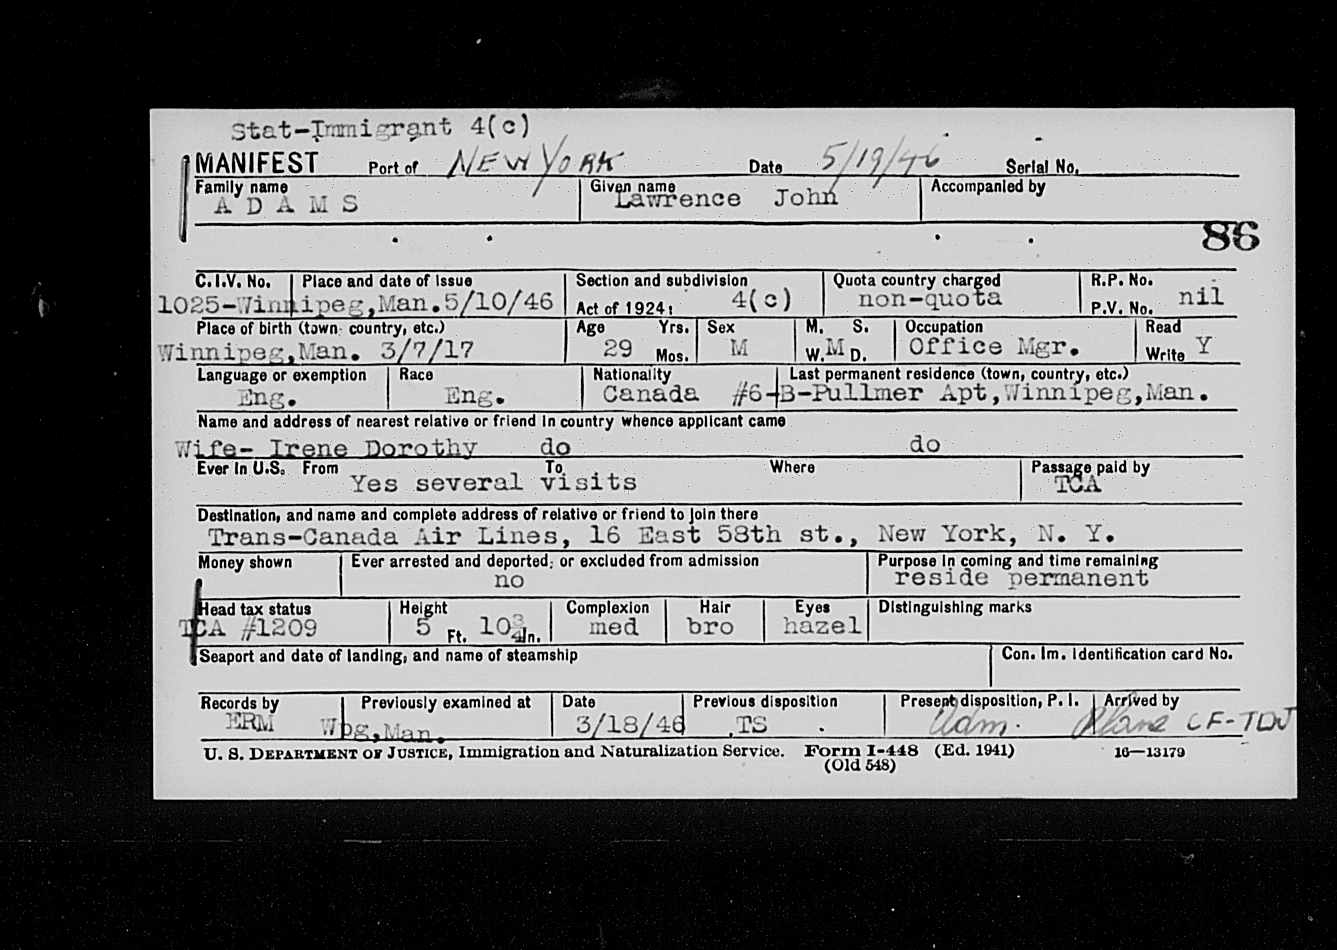 Stat-Immigrant 4(c)
MANIFEST Port of NEW YORK Date 5/19/46 Serial No.
Family name Given name Accompanied by
A D A M S Lawrence John
86
C.I.V. No. Place and date of issue Section and subdivision Quota country charged R.P. No.
1025-Winnipeg,Man.5/10/46 Act of 1924: 4(c) non-quota P.V. No. nil
Place of birth (town, country, etc.) Age Yrs. Sex M. S. Occupation Read
Winnipeg,Man. 3/7/17 29 Mos. M W. M D. Office Mgr. Write Y
Language or exemption Race Nationality Last permanent residence (town, country, etc.)
Eng. Eng. Canada #6-B-Pullmer Apt,Winnipeg,Man.
Name and address of nearest relative or friend in country whence applicant came
Wife- Irene Dorothy do do
Ever in U.S. From To Where Passage paid by
Yes several visits TCA
Destination, and name and complete address of relative or friend to join there
Trans-Canada Air Lines, 16 East 58th st., New York, N. Y.
Money shown Ever arrested and deported, or excluded from admission Purpose in coming and time remaining
no reside permanent
Head tax status Height Complexion Hair Eyes Distinguishing marks
TCA #1209 5 Ft. 10 3/4 In. med bro hazel
Seaport and date of landing, and name of steamship Con. Im. Identification card No.
Records by Previously examined at Date Previous disposition Present disposition, P. I. Arrived by
ERM Wpg,Man. 3/18/46 TS Adm. Plane CF-TDJ
U. S. DEPARTMENT OF JUSTICE, Immigration and Naturalization Service. Form I-448 (Ed. 1941) 16—13179
(Old 548)